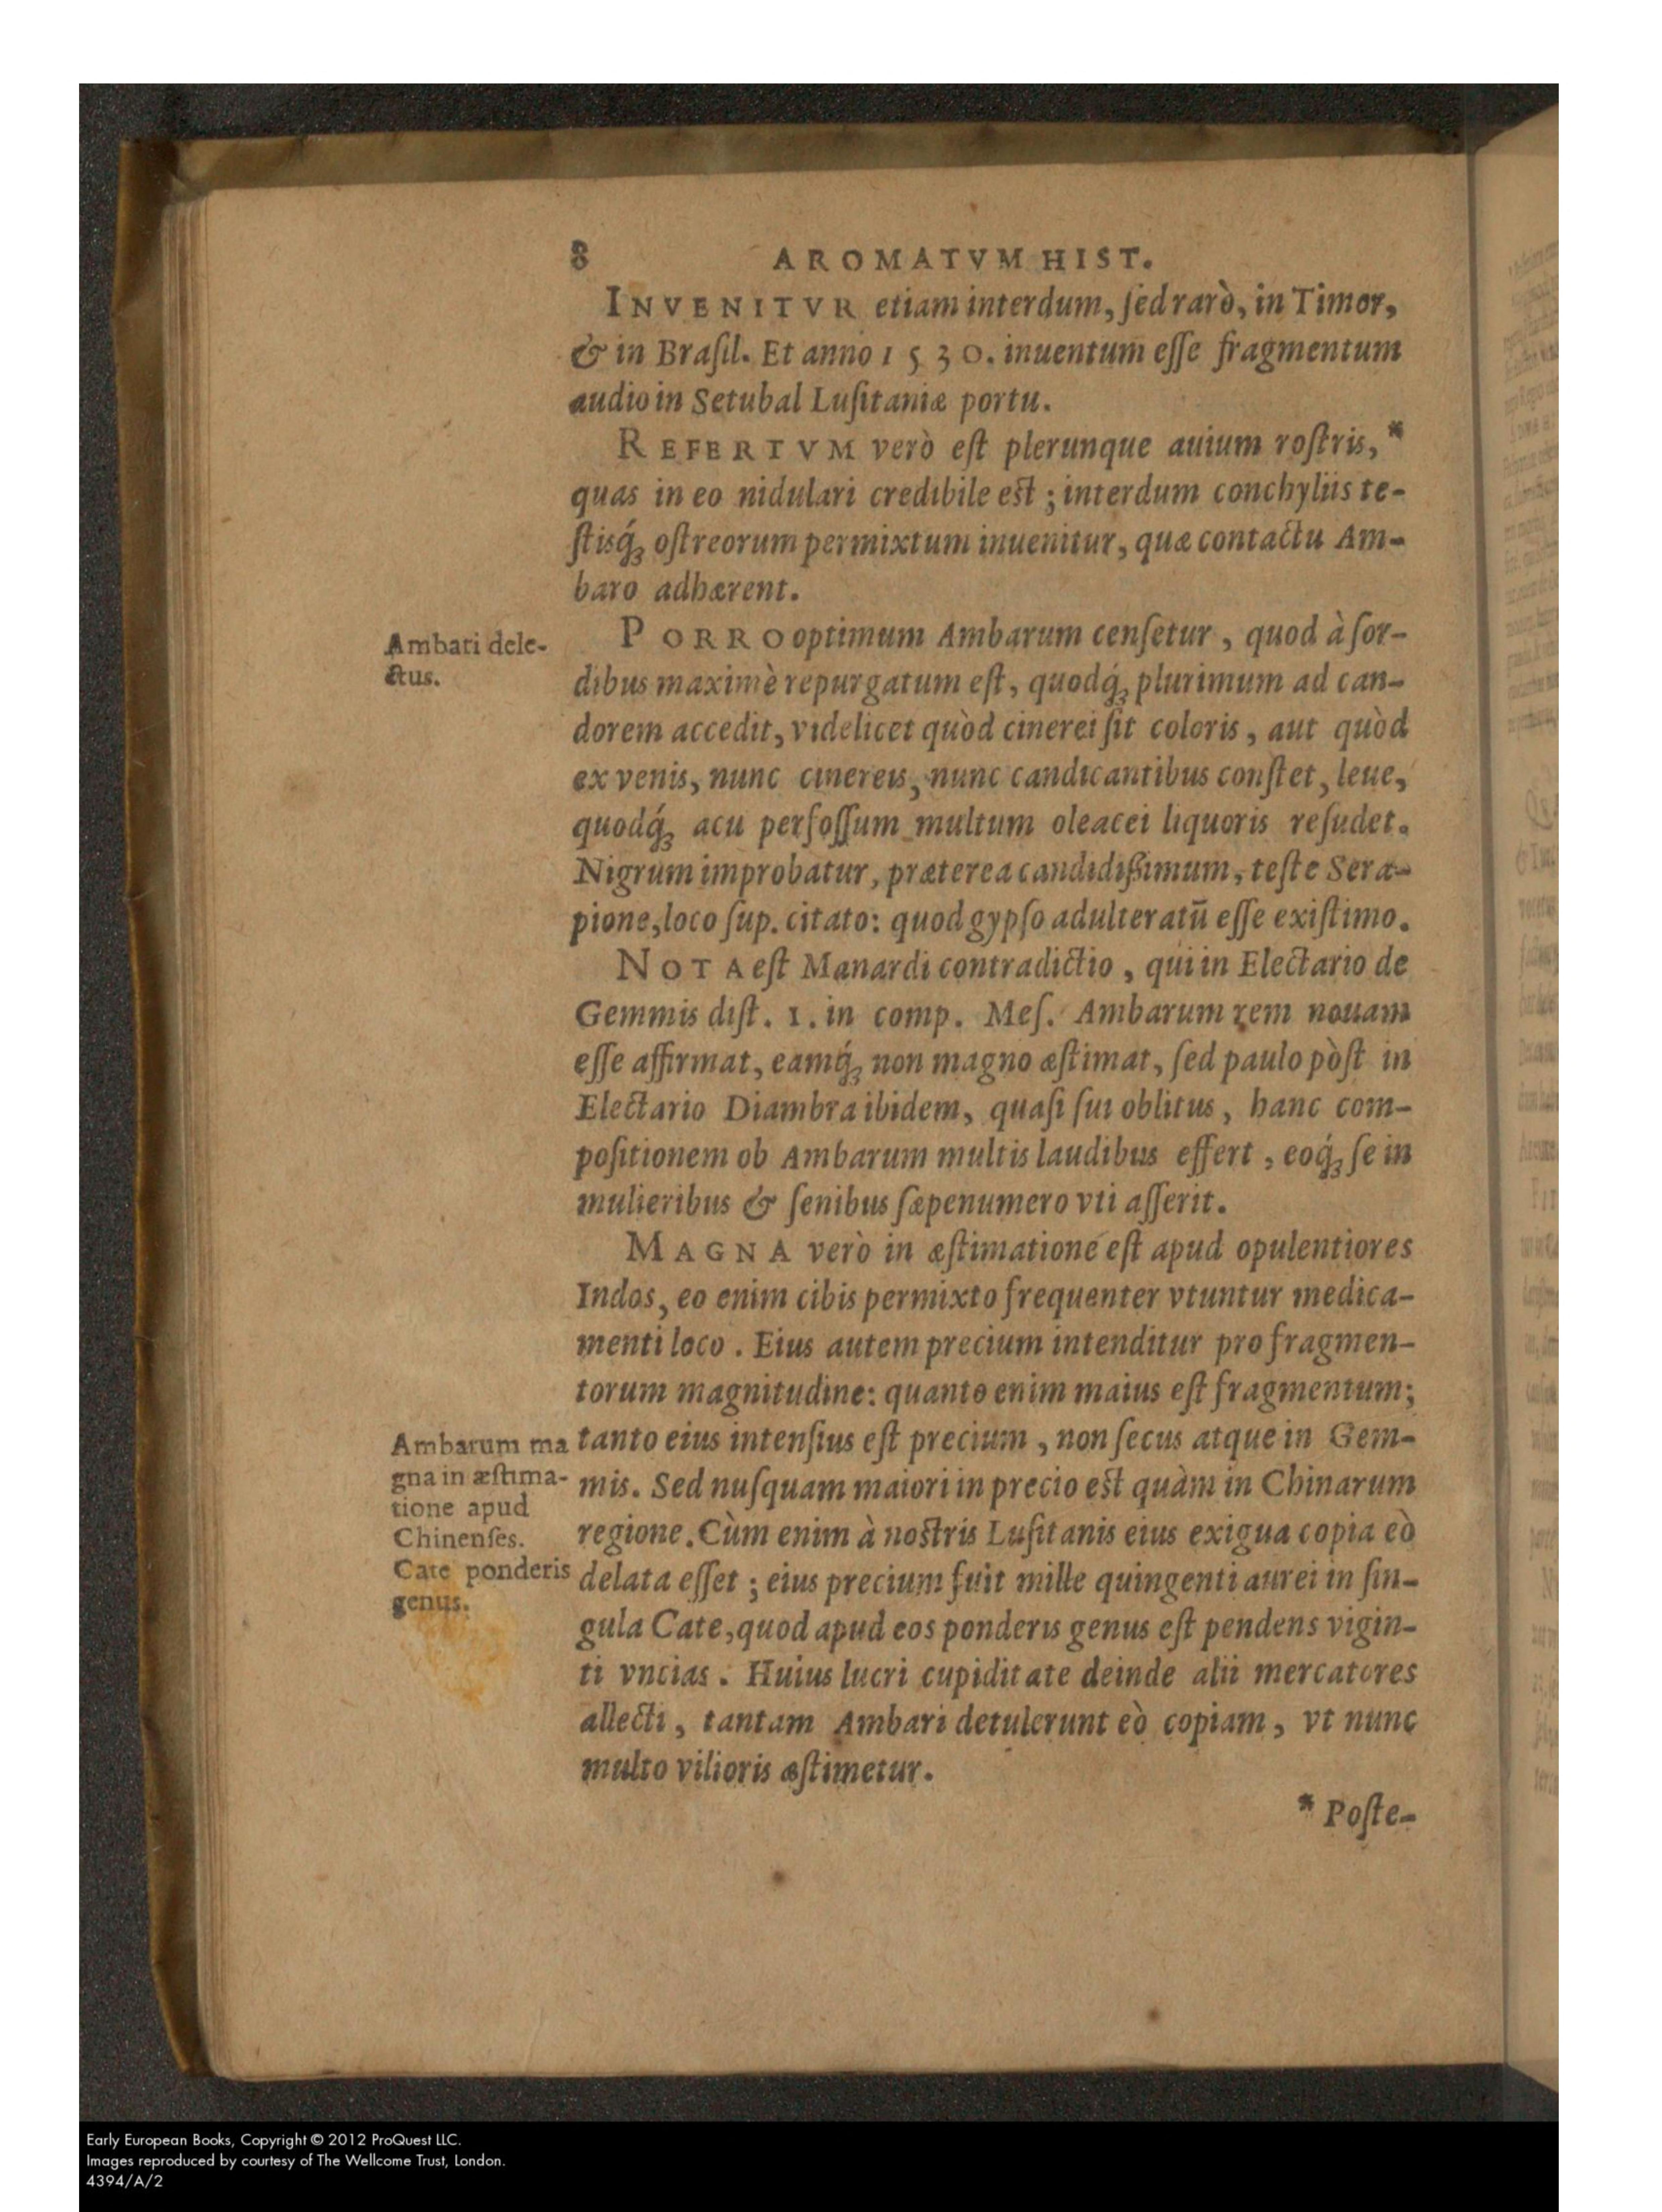 8 AROMATVM HIST.
INVENITVR etiam interdum, ſed rarò, in Timor,
& in Braſil. Et anno 1530. inuentum eſſe fragmentum
audio in Setubal Luſitaniæ portu.
REFERTVM verò eſt plerunque auium roſtris, *
quas in eo nidulari credibile est ; interdum conchyliis te-
ſtisq́ꝫ oſtreorum permixtum inuenitur, quæ contactu Am-
baro adhærent.
Ambari dele-
ctus.
PORRO optimum Ambarum cenſetur, quod à ſor-
dibus maximè repurgatum eſt, quodq́ꝫ plurimum ad can-
dorem accedit, videlicet quòd cinerei ſit coloris, aut quòd
ex venis, nunc cinereis, nunc candicantibus conſtet, leue,
quodq́ꝫ acu perfoſſum multum oleacei liquoris reſudet.
Nigrum improbatur, præterea candidißimum, teſte Sera-
pione, loco ſup. citato: quod gypſo adulteratū eſſe exiſtimo.
NOTA eſt Manardi contradictio, qui in Electario de
Gemmis diſt. 1. in comp. Meſ. Ambarum rem nouam
eſſe affirmat, eamq́ꝫ non magno æſtimat, ſed paulo pòſt in
Electario Diambra ibidem, quaſi ſui oblitus, hanc com-
poſitionem ob Ambarum multis laudibus effert, eoq́ꝫ ſe in
mulieribus & ſenibus ſæpenumero vti aſſerit.
MAGNA verò in æſtimatione eſt apud opulentiores
Indos, eo enim cibis permixto frequenter vtuntur medica-
menti loco. Eius autem precium intenditur pro fragmen-
torum magnitudine: quanto enim maius eſt fragmentum;
tanto eius intenſius eſt precium, non ſecus atque in Gem-
mis. Sed nuſquam maiori in precio est quàm in Chinarum
regione. Cùm enim à nostris Luſitanis eius exigua copia eò
delata eſſet ; eius precium fuit mille quingenti aurei in ſin-
gula Cate, quod apud eos ponderis genus eſt pendens vigin-
ti vncias. Huius lucri cupiditate deinde alii mercatores
allecti, tantam Ambari detulerunt eò copiam, vt nunc
multo vilioris æſtimetur.
Ambarum ma
gna in æſtima-
tione apud
Chinenſes.
Cate ponderis
genus.
* Poſte-
Early European Books, Copyright © 2012 ProQuest LLC.
Images reproduced by courtesy of The Wellcome Trust, London.
4394/A/2